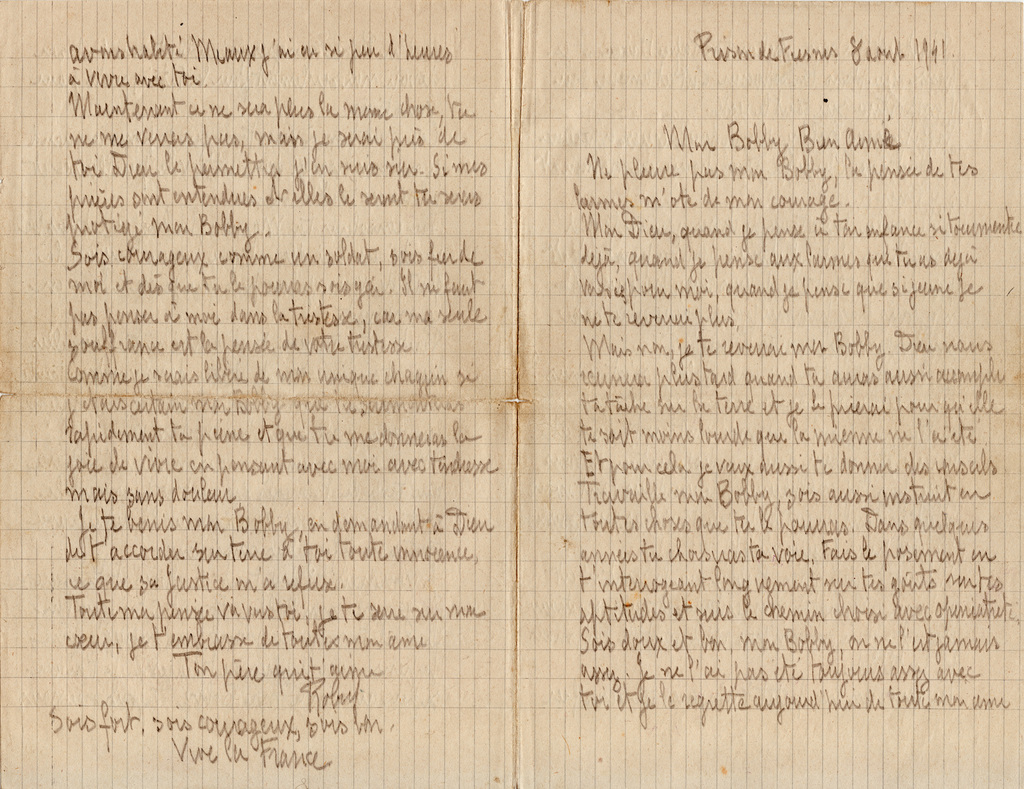 Prison de Fresnes 8 août 1941.
Mon Bobby Bien Aimé
Ne pleure pas mon Bobby, la pensée de tes
larmes m'ôte de mon courage.
Mon Dieu, quand je pense à ton enfance si tourmentée
déjà, quand je pense aux larmes que tu as déjà
versées pour moi, quand je pense que si jeune je
ne te reverrai plus.
Mais non, je te reverrai mon Bobby. Dieu nous
réunira plus tard quand tu auras aussi accompli
ta tâche sur la terre et je le prierai pour qu'elle
te soit moins lourde que la mienne ne l'a été.
Et pour cela je veux aussi te donner des conseils
Travaille mon Bobby, sois aussi instruit en
toutes choses que tu le pourras. Dans quelques
années tu choisiras ta voie. Fais le posément en
t'interrogeant longuement sur tes goûts sur tes
aptitudes et suis le chemin choisi avec opiniâtreté.
Sois doux et bon, mon Bobby, on ne l'est jamais
assez. Je ne l'ai pas été toujours assez avec
toi et je le regrette aujourd'hui de toute mon âme
avons habité Meaux j'ai eu si peu d'heures
à vivre avec toi.
Maintenant ce ne sera plus la même chose, tu
ne me verras pas, mais je serai près de
toi. Dieu le permettra j'en suis sûr. Si mes
prières sont entendues et elles le seront tu seras
protégé mon Bobby.
Sois courageux comme un soldat, sois fier de
moi et dès que tu le pourras sois gai. Il ne faut
pas penser à moi dans la tristesse, car ma seule
souffrance est la pensée de votre tristesse.
Comme je serais libre de mon unique chagrin si
j'étais certain mon Bobby que tu surmonteras
rapidement ta peine et que tu me donneras la
joie de vivre en pensant avec moi avec tendresse
mais sans douleur.
Je te bénis mon Bobby, en demandant à Dieu
de t'accorder sur terre à toi toute innocence,
ce que sa Justice m'a refusé.
Toute ma pensée va vers toi, je te serre sur mon
cœur, je t'embrasse de toute mon âme
Ton père qui t'aime
Roby
Sois fort, sois courageux, sois bon.
Vive la France